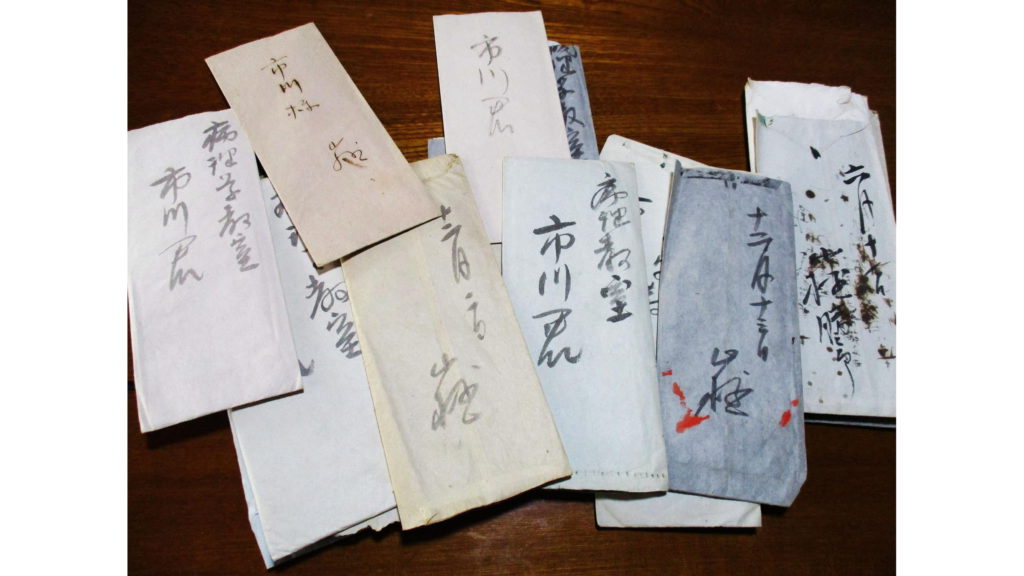 病理学教室
市川君
市川様
山極
市川君
理学教室
教室
十二月二日
山極
病理教室
市川君
十二月十三日
山極
六月十七日
山極勝三郎